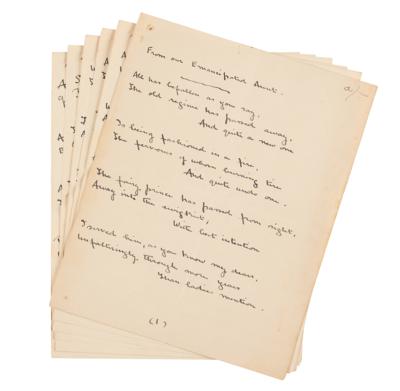 From our Emancipated Aunt.
All has befallen as you say.
The old régime has passed away,
And quite a new one
Is being fashioned in a fire,
The fervours of whose burning tire
And quite undo one.
The fairy prince has passed from sight,
Away into the ewigkeit,
With best intention
I served him, as you know my dears,
Unfalteringly through more years
Than ladies mention.
(1)